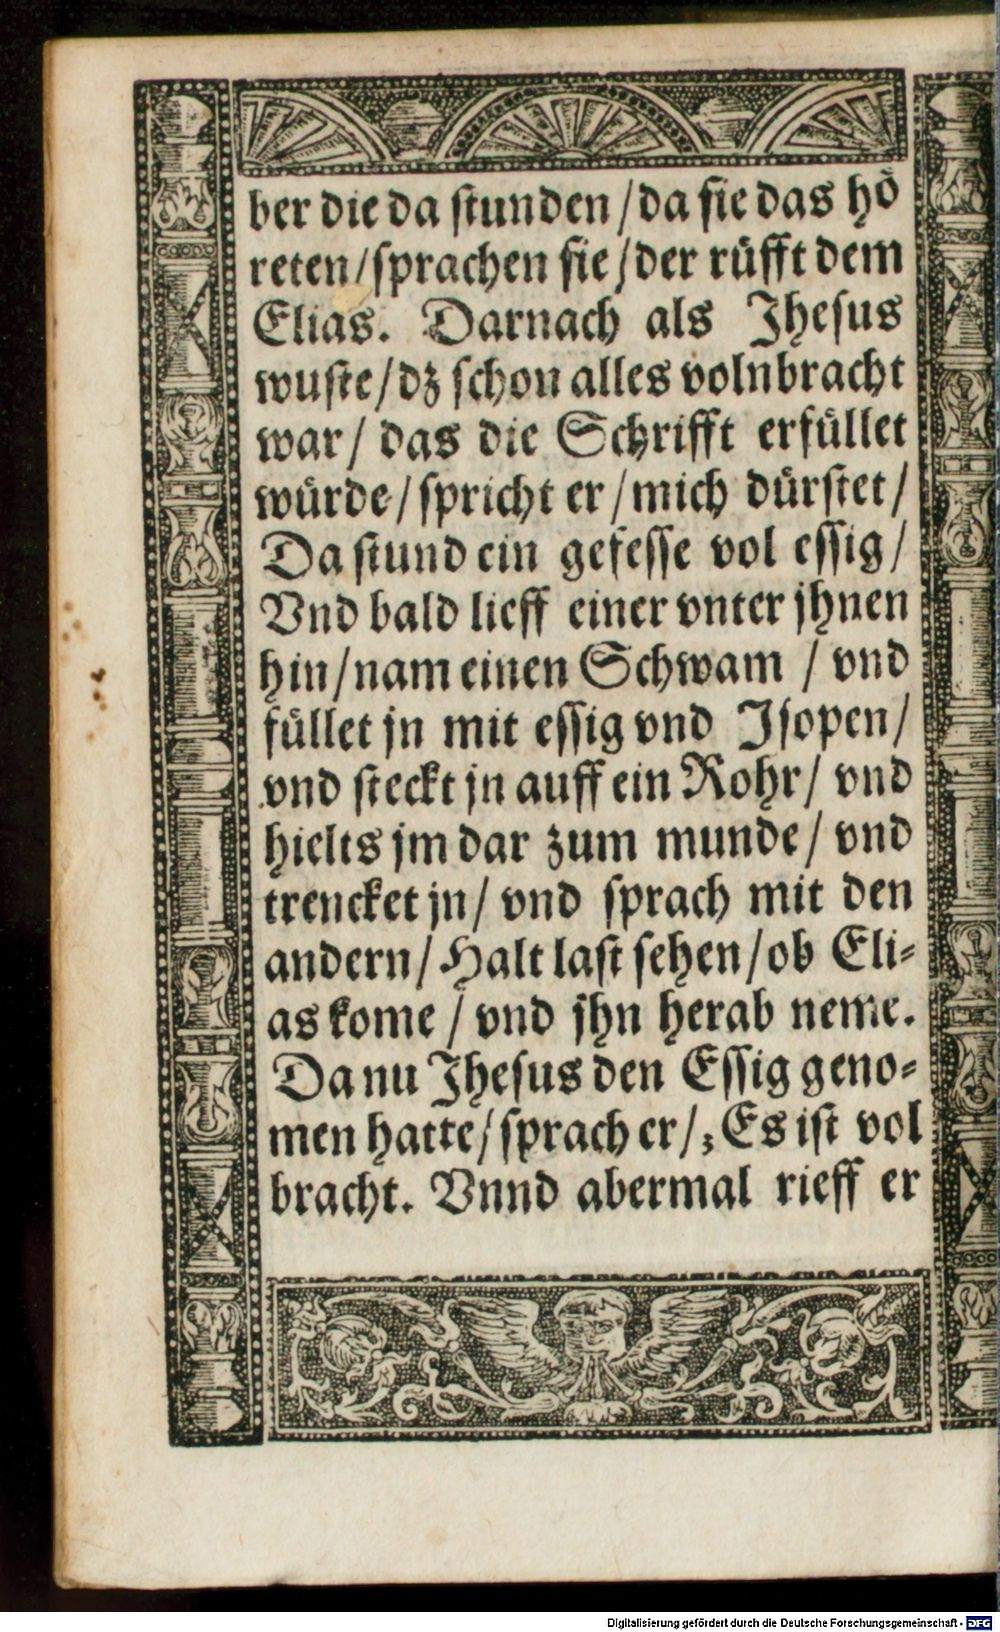 ber die da stunden/da sie das hö
reten/sprachen sie/der rüfft dem
Elias. Darnach als Jhesus
wuste/dz schon alles volnbracht
war/ das die Schrifft erfüllet
würde/spricht er/mich dürstet/
Da stund ein gefesse vol essig/
Vnd bald lieff einer vnter jhnen
hin/nam einen Schwam / vnd
füllet jn mit essig vnd Jsopen/
vnd steckt jn auff ein Rohr/ vnd
hielts jm dar zum munde/ vnd
trencket jn/ vnd sprach mit den
andern/Halt last sehen/ob Eli-
as kome / vnd jhn herab neme.
Da nu Jhesus den Essig geno-
men hatte/sprach er/ Es ist vol
bracht. Vnnd abermal rieff er
Digitalisierung gefördert durch die Deutsche Forschungsgemeinschaft - DFG